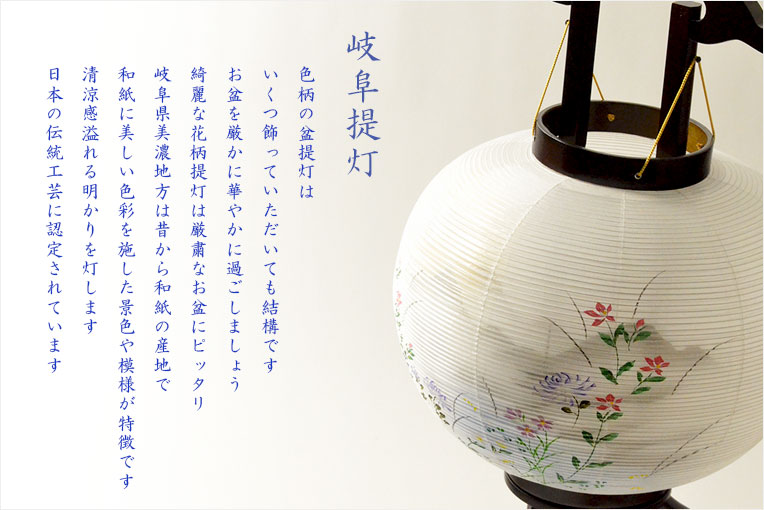 岐阜提灯
色柄の盆提灯は
いくつ飾っていただいても結構です
お盆を厳かに華やかに過ごしましょう
綺麗な花柄提灯は厳粛なお盆にピッタリ
岐阜県美濃地方は昔から和紙の産地で
和紙に美しい色彩を施した景色や模様が特徴です
清涼感溢れる明かりを灯します
日本の伝統工芸に認定されています